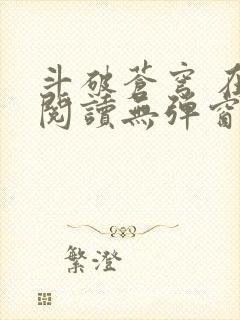 斗破蒼穹
閱讀無彈窗
繁澄